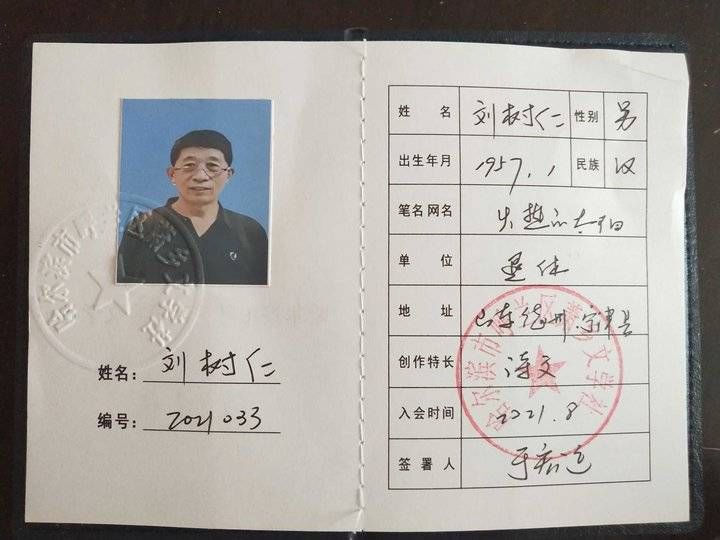 姓名: 刘树仁
编号: 2021033
姓名 刘树仁 性别 男
出生年月 1957.1 民族 汉
笔名网名 火热的太阳
单位 退休
地址 山东德州宁津县
创作特长 诗文
入会时间 2021.8
签署人
哈尔滨市 区 文学社
哈尔滨市 文学社